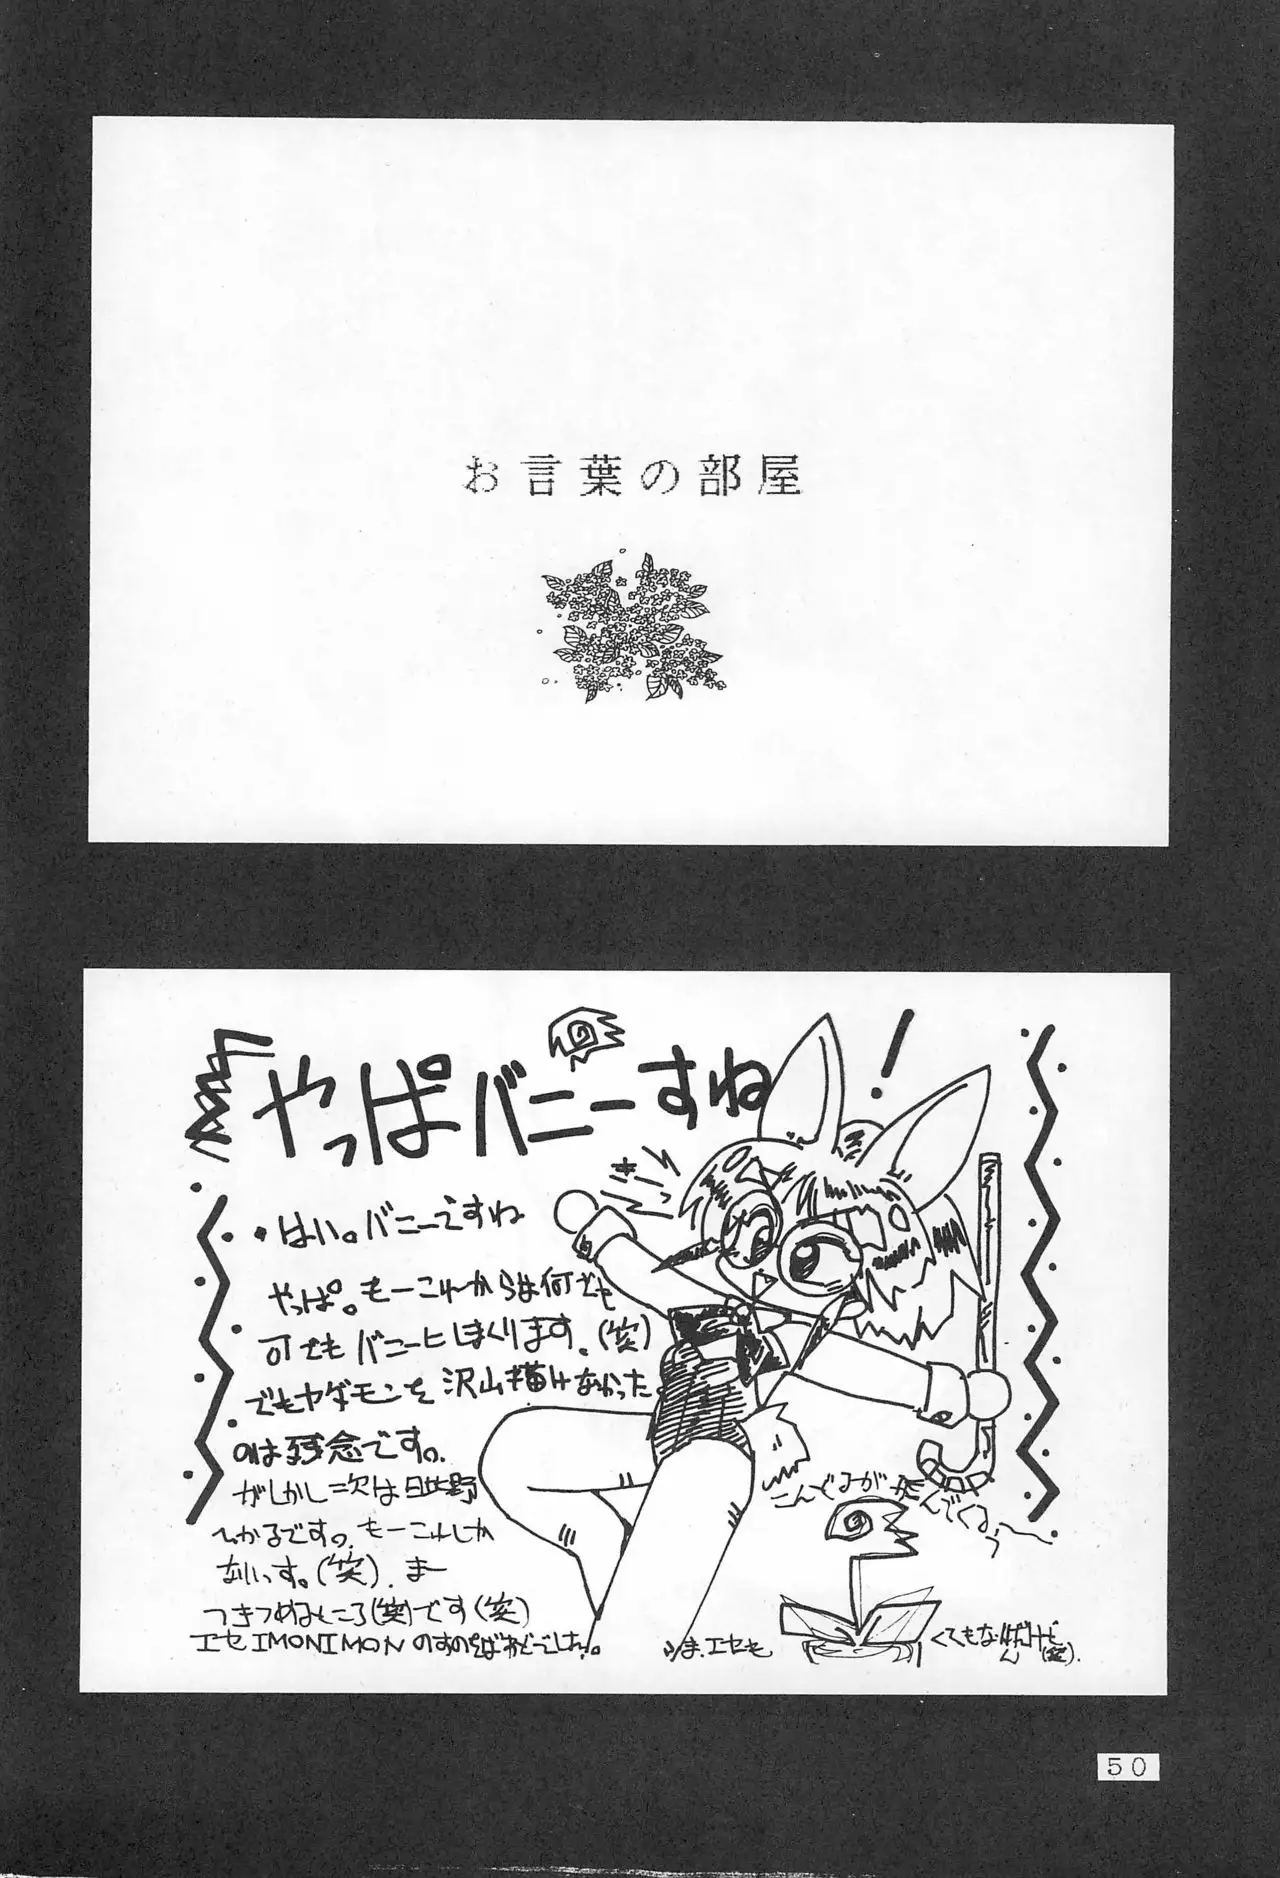 お言葉の部屋
やっぱバニーすね!
・はい。バニーですね
やっぱ。もーこれからは何でも
可でもバニーにしまくります。(笑)
でもヤダモンを沢山描けなかった
のは残念です。
がしかし二次は日比野
ひかるです。もーこれしか
ないっす。(笑)。まー
つきつめるところ(笑)です(笑)
エセIMONIMONの
こんどるが飛んでくるぅ〜
50